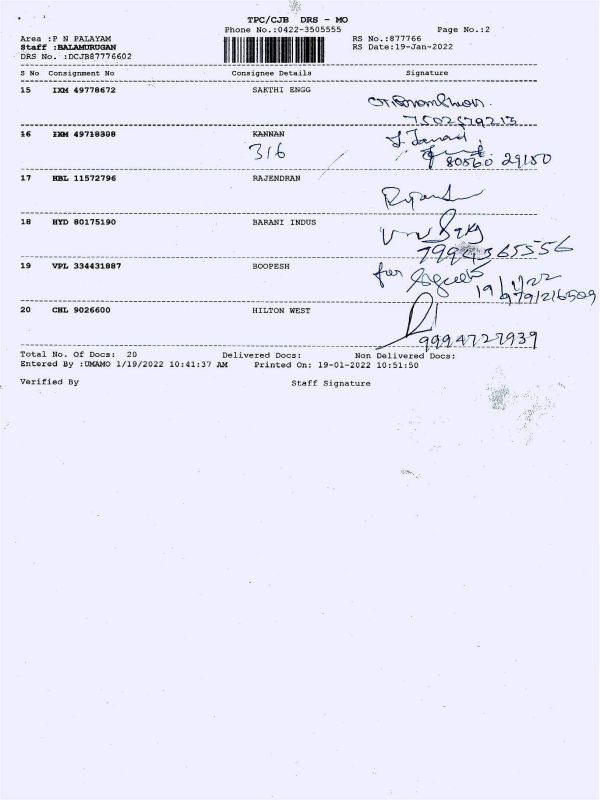 TPC/CJB DRS - MO
Phone No.:0422-3505555 Page No.:2
Area :P N PALAYAM RS No.:877766
Staff :BALAMURUGAN RS Date:19-Jan-2022
DRS No. :DCJB87776602
S No Consignment No Consignee Details Signature
15 IXM 49778672 SAKTHI ENGG
7502579213
16 IXM 49718308 KANNAN
316 80560 29150
17 HBL 11572796 RAJENDRAN
18 HYD 80175190 BARANI INDUS
7994365556
19 VPL 334431887 BOOPESH
for
19/1/22
9791216509
20 CHL 9026600 HILTON WEST
9994727939
Total No. Of Docs: 20 Delivered Docs: Non Delivered Docs:
Entered By :UMAMO 1/19/2022 10:41:37 AM Printed On: 19-01-2022 10:51:50
Verified By Staff Signature